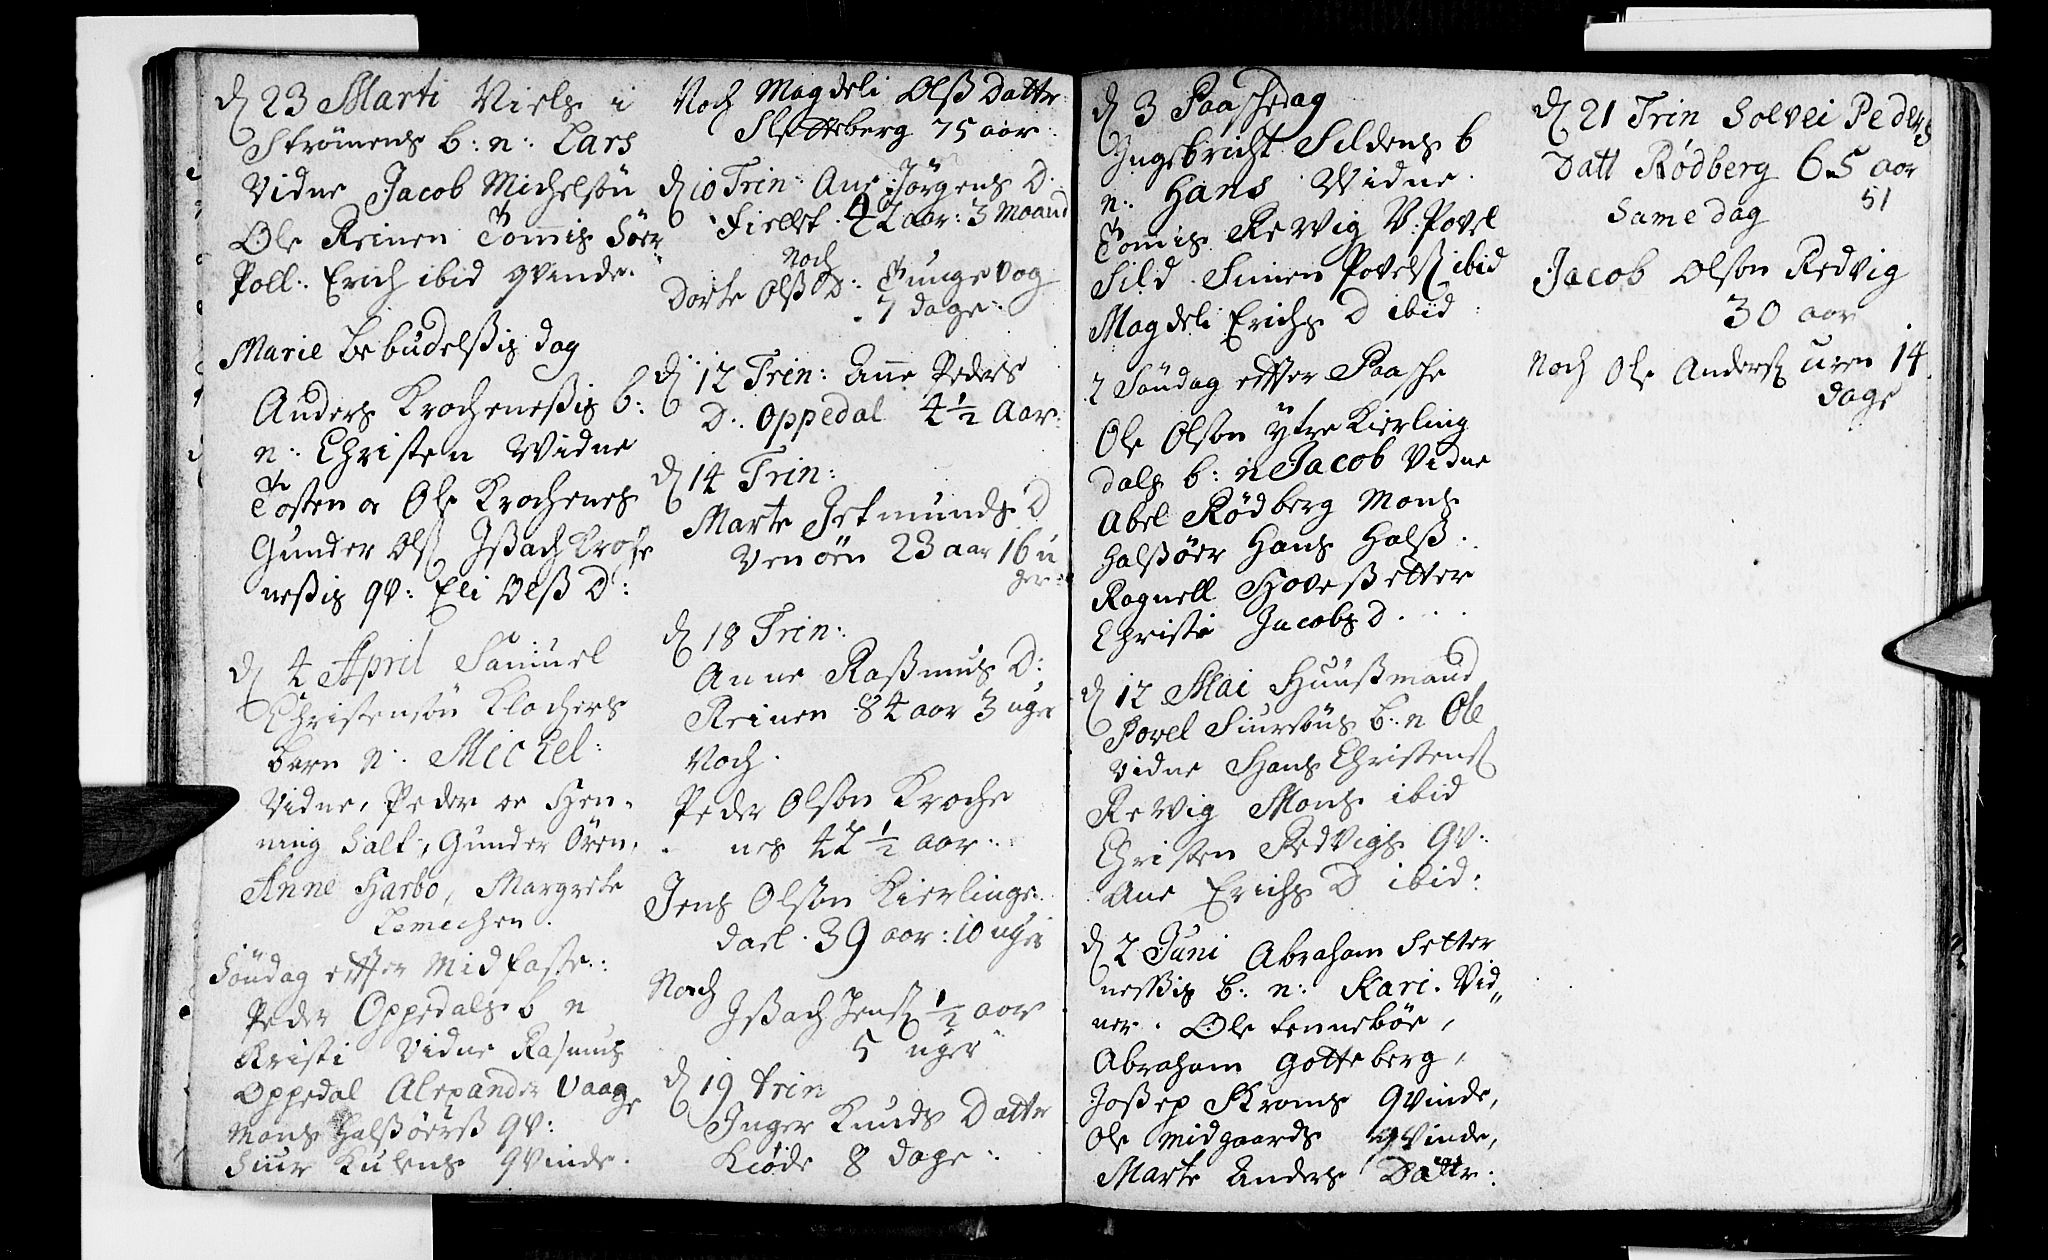 d 23 Marti Niels i
Strømens b: n: Lars
Vidne Jacob Michelsøn
Ole Reinen Tomis Søer
Poll: Erich ibid qvinde.
Marie Bebudelßis dag
Anders Krocheneßis b:
n: Christen Widne
Tosten oc Ole Krochenes
Gunder Olß Jßach Kroche
neßis qv: Eli Olß D:
d 4 April Samuel
Christensøn Klochers
barn n: Michel:
Vidne, Peder oc Hen-
ning Salt, Gunder Ören,
Anne Harbo, Margrete
Lemechen.
Søndag etter Midfaste:
Peder Oppedals b n
Kristi Vidne Rasmus
Oppedal Alexander Vaage
Mons Halßøerß qv:
Siur Kulens qvinde.
Noch Magdeli Olß Datter
Sletteberg 75 aar:
d 10 Trin: Ane Jørgens D.
Fiellet 42 aar: 3 Maand
Noch
Dorte Olß D: Tungevog
7 dage:
d 12 Trin: Anne Peders
D. Oppedal 4 1/2 Aar:
d 14 Trin:
Marte Jetmunds D
Venøen 23 aar 16 u
ger:
d 18 Trin:
Anne Raßmus D:
Reinen 84 aar 3 uger
Noch.
Peder Olsøn Kroche
nes 42 1/2 aar:
Jens Olsøn Kierlinge
dael. 39 aar: 10 uger
Noch
Jßach Jenß 1/2 aar
5 uger
d 19 trin
Inger Knuds Datter
Kiøde 8 dage:
d 3 Paaschedag
Ingebricht Sildens b
n: Hans Widne.
Tomis Rewig V: Povel
Sild Simen Povelß ibid
Magdeli Erichs D ibid:
2 Søndag etter Paasche
Ole Olsøn ytre Kierling
dals b: n Jacob Vidne
Abel Rødberg Mons
Halßøer Hans Halß.
Ragnell Hoveßetter
Christi Jacobs D.
d 12 Mai Huußmand
Povel Siursøns b: n Ole
Vidne Hans Christenß
Rewig Mons ibid
Christen Redvigs qv:
Ane Erichs D ibid:
d 2 Juni Abraham Setter
neßis b: n: Kari. Vid„
ner. Ole tennebøe,
Abraham Gotteberg,
Joßep Kroms qvinde,
Ole Midgaards qvinde,
Marte Anders Datter:
d 21 Trin Solvei Peders
Datt Rødberg 65 aar
Same dag 51
Jacob Olsøn Redvig
30 aar
Noch Ole Anderß uren 14
dage